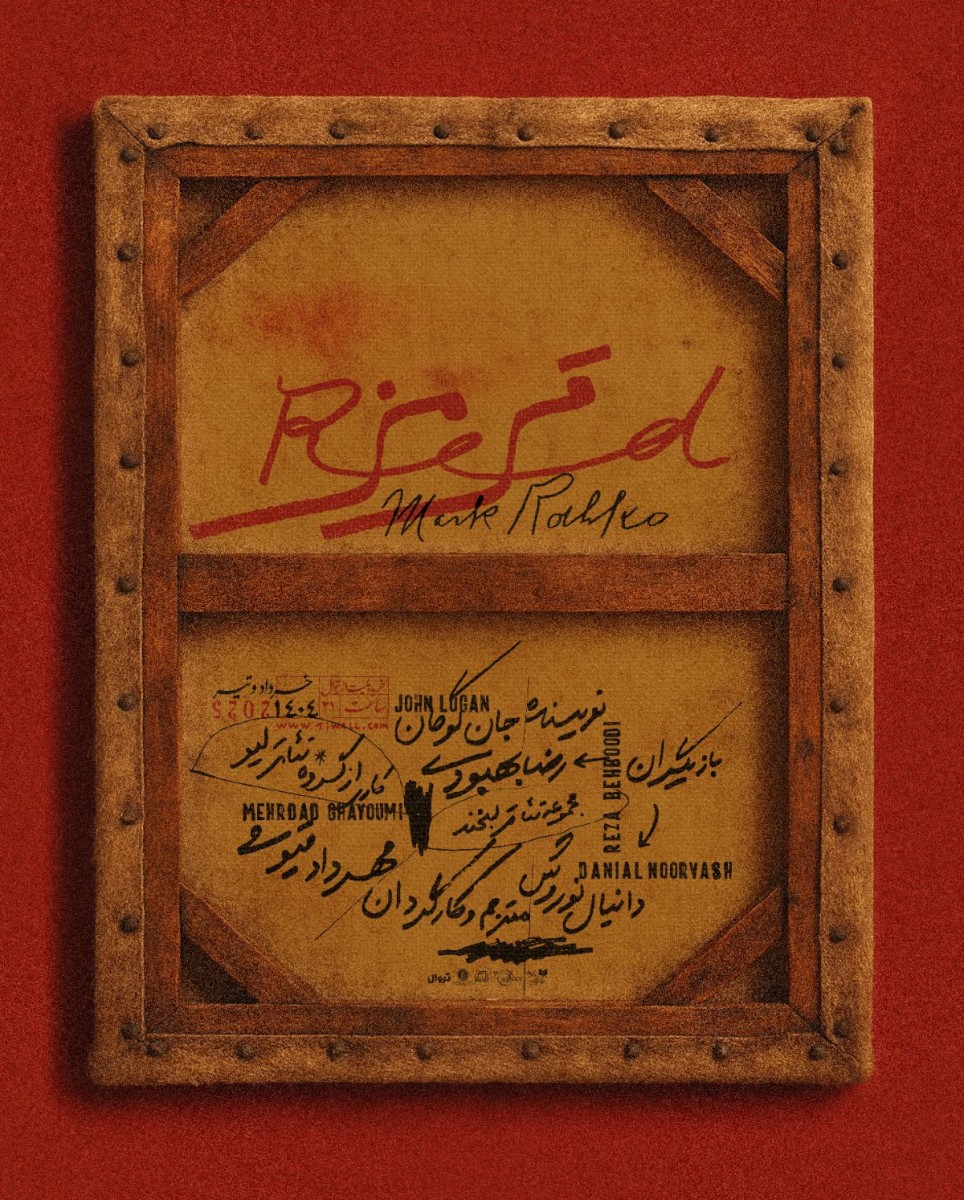 Red
قرمز
Mark Rothko
خرداد و تیر
۱۴۰۴
2025
ساعت ۲۱
www.tiwall.com
JOHN LOGAN
نویسنده جان لوگان
بازیگران
رضا بهبودی
REZA BEHBOODI
DANIAL NOORVASH
دانیال نوروش
کاری از گروه تئاتر لیو
مجموعه تئاتر لبخند
MEHRDAD GHAYOUMI
مهرداد قیومی
مترجم و کارگردان
تیوال